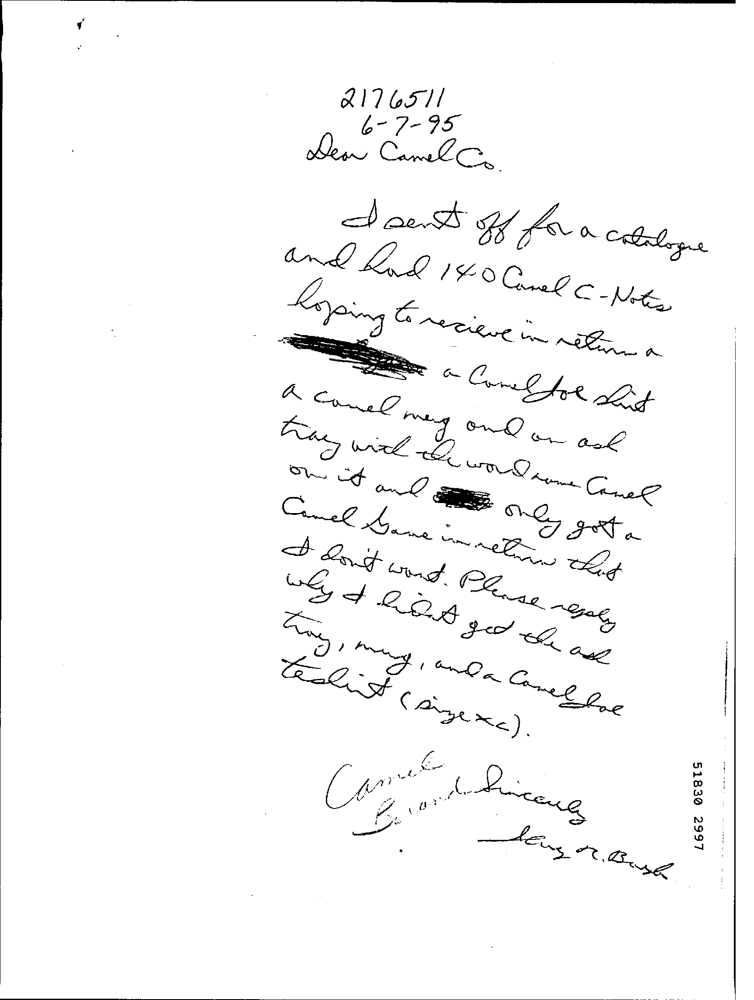 2176511
6-7-95
Dear Camel Co.
I sent off for a catalogue
and had 140 Camel C-Notes
hoping to recieve in return a
a Camel Joe shirt
a camel mug and an ash
tray with the word name Camel
on it and only got a
Camel Game in return that
I don't want. Please reply
why I didn't get the ash
tray, mug, and a Camel Joe
teshirt (size
Camel
Brand Sincerely
R. Bush
51830 2997